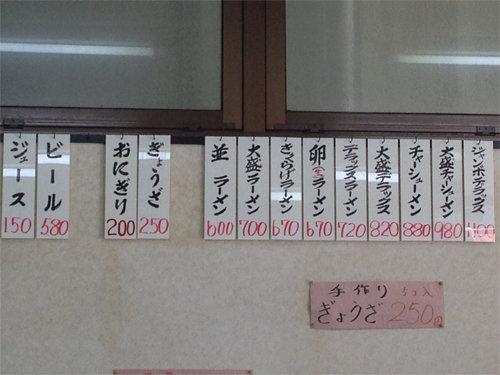 ジャンボデラックス
1100
大盛チャーシューメン
980
チャーシューメン
880
大盛デラックス
820
デラックスラーメン
720
卵ラーメン
670
きくらげラーメン
670
大盛ラーメン
700
並 ラーメン
600
ぎょうざ
250
おにぎり
200
ビール
580
ジュース
150
手作り 5コ入
ぎょうざ 250円